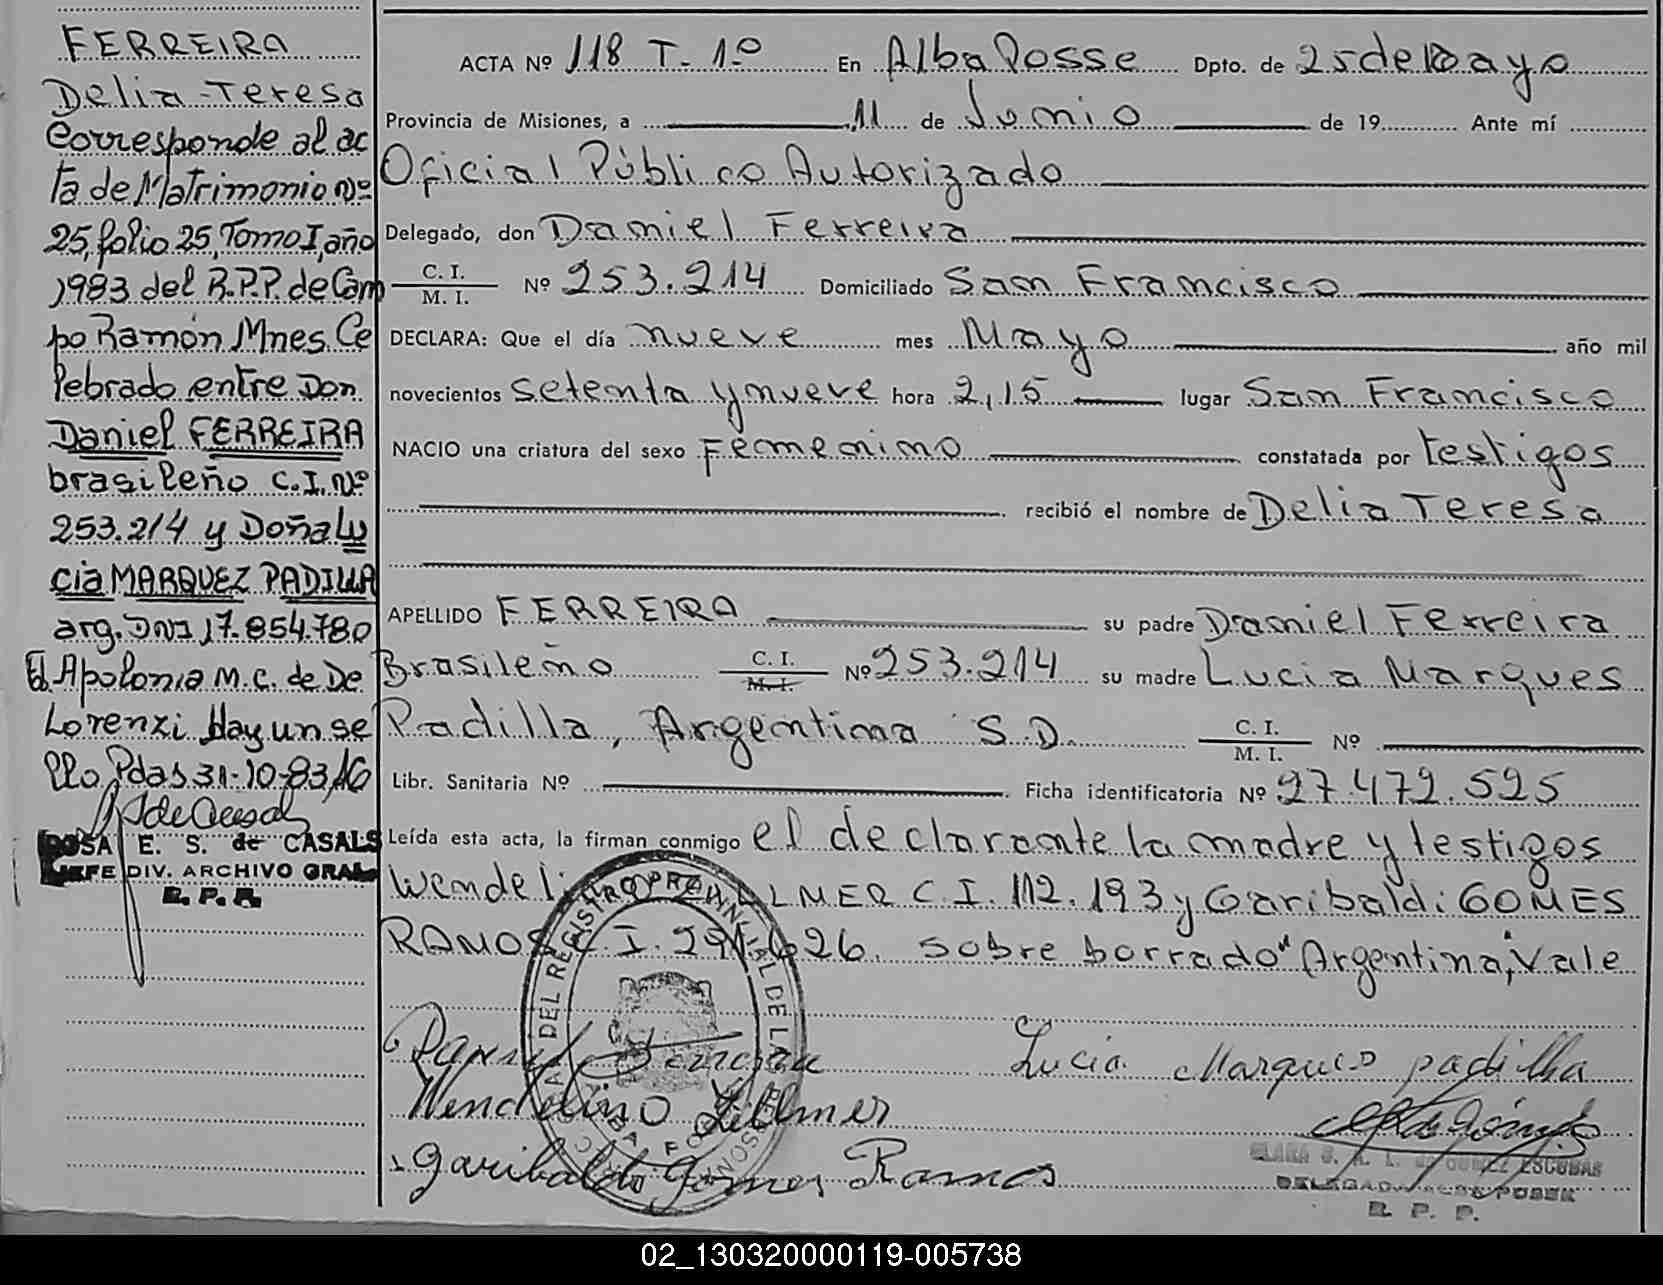 FERREIRA
Delia Teresa
Corresponde al ac
ta de Matrimonio Nº
25, folio 25, Tomo I, año
1983 del R.P.P. de Cam
po Ramón Mnes. Ce
lebrado entre Don
Daniel FERREIRA
brasileño C.I. Nº
253.214 y Doña Lu
cia MARQUEZ PADILLA
arg. DNI 17.854.780
Apolonia M.C. de De
Lorenzi Hay un se
llo Pdas 31-10-83
ROSA E. S. de CASALS
JEFE DIV. ARCHIVO GRAL
R. P. P.
ACTA Nº 118 T. 1º En Alba Posse Dpto. de 25 de Mayo
Provincia de Misiones, a 11 de Junio de 19 Ante mí
Oficial Público Autorizado
Delegado, don Daniel Ferreira
C. I. M. I. Nº 253.214 Domiciliado San Francisco
DECLARA: Que el día nueve mes Mayo año mil
novecientos setenta y nueve hora 2,15 lugar San Francisco
NACIO una criatura del sexo Femenino constatada por testigos
recibió el nombre de Delia Teresa
APELLIDO FERREIRA su padre Daniel Ferreira
Brasileño C. I. M. I. Nº 253.214 su madre Lucia Marques
Padilla, Argentina S.D. C. I. M. I. Nº
Libr. Sanitaria Nº Ficha identificatoria Nº 27.472.525
Leída esta acta, la firman conmigo el declarante la madre y testigos
LMER C.I. 112.193 y Garibaldi GOMES
RAMOS C.I. sobre borrado "Argentina", Vale
Lucia Marques padilha
Wendelino Zillmer
Garibaldi Gomes Ramos
DEL REGISTRO PROVINCIAL DE LA
GOMEZ ESCOBAR
R. P. P.
02_130320000119-005738